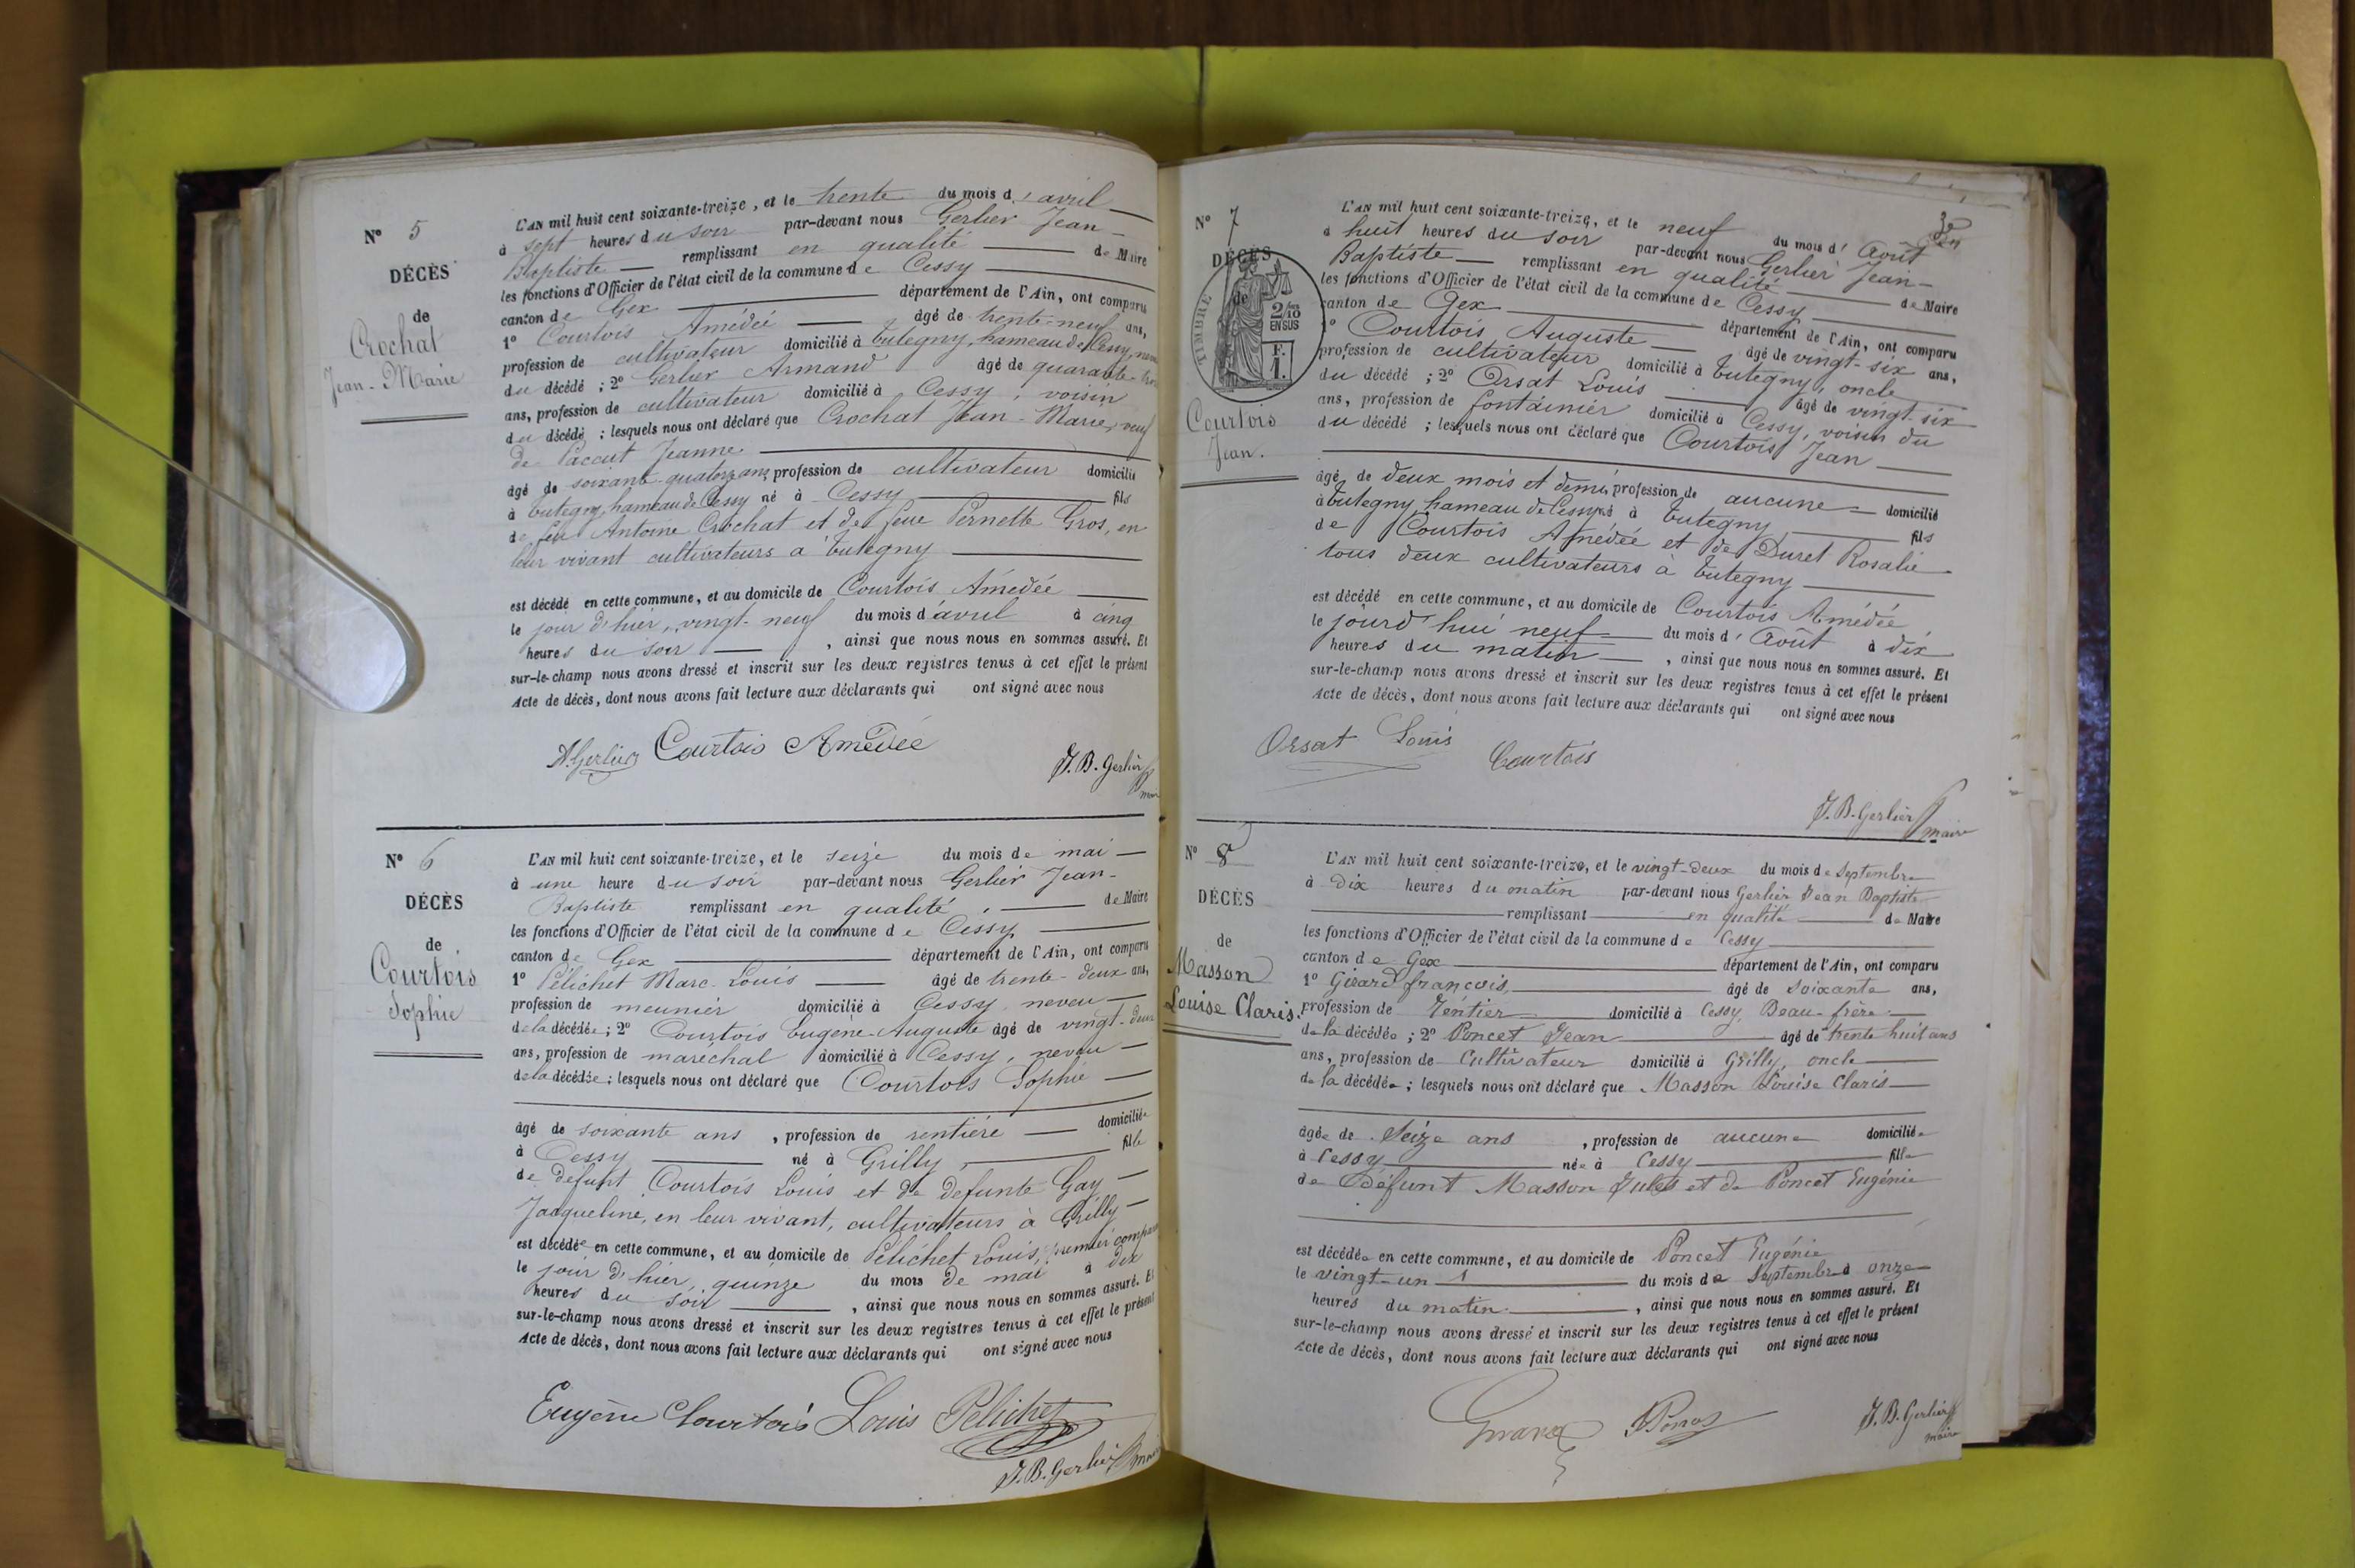 N° 5
DÉCÈS
de
Crochat
Jean-Marie
L'AN mil huit cent soixante-treize, et le trente du mois d'avril
à sept heures du soir par-devant nous Gerlier Jean-
Baptiste remplissant en qualité de Maire
les fonctions d'Officier de l'état civil de la commune de Cessy
canton de Gex département de l'Ain, ont comparu
1° Courtois Amédée âgé de trente-neuf ans,
profession de cultivateur domicilié à Tutegny, hameau de Cessy,
du décédé ; 2° Gerlier Armand âgé de quarante-
ans, profession de cultivateur domicilié à Cessy, voisin
du décédé ; lesquels nous ont déclaré que Crochat Jean-Marie, veuf
de Paccut Jeanne
âgé de soixante-quatorze ans, profession de cultivateur domicilié
à Tutegny, hameau de Cessy né à Cessy fils
de feu Antoine Crochat et de feue Pernette Gros, en
leur vivant cultivateurs à Tutegny
est décédé en cette commune, et au domicile de Courtois Amédée
le jour d'hier, vingt-neuf du mois d'avril à cinq
heures du soir , ainsi que nous nous en sommes assuré. Et
sur-le-champ nous avons dressé et inscrit sur les deux registres tenus à cet effet le présent
Acte de décès, dont nous avons fait lecture aux déclarants qui ont signé avec nous
A. Gerlier Courtois Amédée
J. B. Gerlier
maire
N° 6
DÉCÈS
de
Courtois
Sophie
L'AN mil huit cent soixante-treize, et le seize du mois de mai
à une heure du soir par-devant nous Gerlier Jean-
Baptiste remplissant en qualité de Maire
les fonctions d'Officier de l'état civil de la commune de Cessy
canton de Gex département de l'Ain, ont comparu
1° Pélichet Marc-Louis âgé de trente-deux ans,
profession de meunier domicilié à Cessy, neveu
de la décédée ; 2° Courtois Eugène-Auguste âgé de vingt-deux
ans, profession de maréchal domicilié à Cessy, neveu
de la décédée ; lesquels nous ont déclaré que Courtois Sophie
âgé de soixante ans , profession de rentière domiciliée
à Cessy né à Grilly, fille
de défunt Courtois Louis et de défunte Gay
Jacqueline, en leur vivant, cultivateurs à Grilly
est décédée en cette commune, et au domicile de Pélichet Louis, premier comparant
le jour d'hier, quinze du mois de mai à dix
heures du soir , ainsi que nous nous en sommes assuré. Et
sur-le-champ nous avons dressé et inscrit sur les deux registres tenus à cet effet le présent
Acte de décès, dont nous avons fait lecture aux déclarants qui ont signé avec nous
Eugène Courtois Louis Pelichet
J. B. Gerlier maire
N° 7
DÉCÈS
de
TIMBRE
2/10
EN SUS
F.
1.
Courtois
Jean.
L'AN mil huit cent soixante-treize, et le neuf du mois d'Août
à huit heures du soir par-devant nous Gerlier Jean-
Baptiste remplissant en qualité de Maire
les fonctions d'Officier de l'état civil de la commune de Cessy
canton de Gex département de l'Ain, ont comparu
1° Courtois Auguste âgé de vingt-six ans,
profession de cultivateur domicilié à Tutegny, oncle
du décédé ; 2° Orsat Louis âgé de vingt-six
ans, profession de fontainier domicilié à Cessy, voisin du
du décédé ; lesquels nous ont déclaré que Courtois Jean
âgé de deux mois et demi, profession de aucune domicilié
à Tutegny, hameau de Cessy né à Tutegny fils
de Courtois Amédée et de Duret Rosalie
tous deux cultivateurs à Tutegny
est décédé en cette commune, et au domicile de Courtois Amédée
le jourd'hui neuf du mois d'Août à dix
heures du matin , ainsi que nous nous en sommes assuré. Et
sur-le-champ nous avons dressé et inscrit sur les deux registres tenus à cet effet le présent
Acte de décès, dont nous avons fait lecture aux déclarants qui ont signé avec nous
Orsat Louis Courtois
J. B. Gerlier
maire
N° 8
DÉCÈS
de
Masson
Louise Claris.
L'AN mil huit cent soixante-treize, et le vingt-deux du mois de Septembre
à Dix heures du matin par-devant nous Gerlier Jean Baptiste
remplissant en qualité de Maire
les fonctions d'Officier de l'état civil de la commune de Cessy
canton de Gex département de l'Ain, ont comparu
1° Girard françois, âgé de soixante ans,
profession de Réntier domicilié à Cessy, Beau-frère
de la décédée ; 2° Poncet Jean âgé de trente huit ans
ans, profession de Cultivateur domicilié à Grilly, oncle
de la décédée ; lesquels nous ont déclaré que Masson Louise Claris
âgée de Seize ans , profession de aucune domiciliée
à Cessy née à Cessy fille
de Défunt Masson Jules et de Poncet Eugénie
est décédée en cette commune, et au domicile de Poncet Eugénie
le vingt-un du mois de Septembre à onze
heures du matin. , ainsi que nous nous en sommes assuré. Et
sur-le-champ nous avons dressé et inscrit sur les deux registres tenus à cet effet le présent
Acte de décès, dont nous avons fait lecture aux déclarants qui ont signé avec nous
J. B. Gerlier
maire